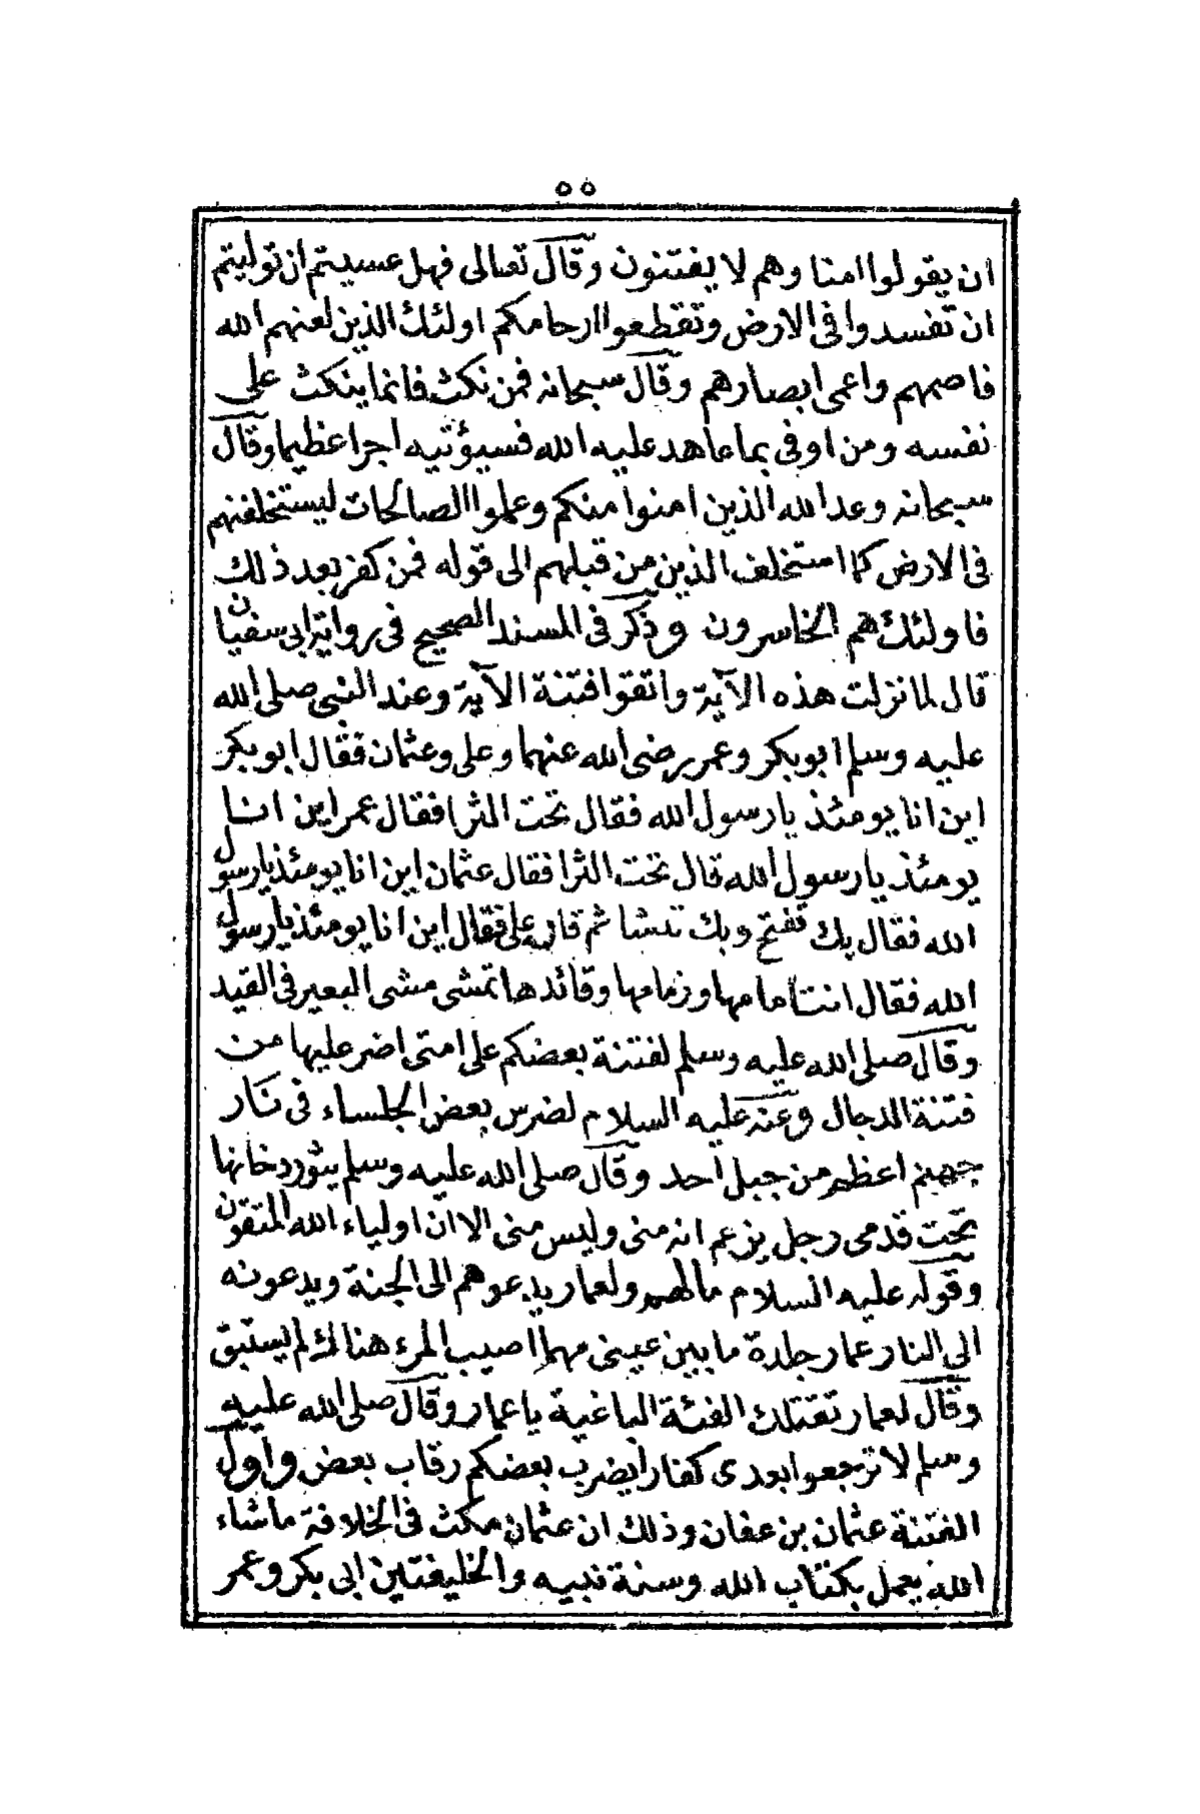 ٥٥
ان يقولوا امنا وهم لا يفتنون وقال تعالى فهل عسيتم ان توليتم
ان تفسدوا فى الارض وتقطعوا ارحامكم اولئك الذين لعنهم الله
فاصمهم واعمى ابصارهم وقال سبحانه فمن نكث فانما ينكث على
نفسه ومن اوفى بما عاهد عليه الله فسيؤتيه اجرا عظيما وقال
سبحانه وعد الله الذين امنوا منكم وعملوا الصالحات ليستخلفنهم
فى الارض كما استخلف الذين من قبلهم الى قوله فمن كفر بعد ذلك
فاولئك هم الخاسرون وذكر فى المسند الصحيح فى رواية ابى سفيان
قال لما نزلت هذه الآية واتقوا فتنة الآية وعند النبى صلى الله
عليه وسلم ابو بكر وعمر رضى الله عنهما وعلى وعثمان فقال ابو بكر
اين انا يومئذ يا رسول الله فقال تحت الثرا فقال عمر اين انا
يومئذ يا رسول الله قال تحت الثرا فقال عثمان اين انا يومئذ يا رسول
الله فقال بك تفتح وبك تنشا ثم قال على فقال اين انا يومئذ يا رسول
الله فقال انت امامها وزمامها وقائدها تمشى مشى البعير فى القيد
وقال صلى الله عليه وسلم لفتنة بعضكم على امتى اضر عليها من
فتنة الدجال وعنه عليه السلام لضرس بعض الجلساء فى نار
جهنم اعظم من جبل احد وقال صلى الله عليه وسلم يثور دخانها
تحت قدمى رجل يزعم انه منى وليس منى الا ان اولياء الله المتقون
وقوله عليه السلام ما لهم ولعمار يدعوهم الى الجنة ويدعونه
الى النار عمار جلدة ما بين عينى مهما اصيب المرء هناك لم يستبق
وقال لعمار تقتلك الفئة الباغية يا عمار وقال صلى الله عليه
وسلم لا ترجعوا بعدى كفارا يضرب بعضكم رقاب بعض واول
الفتنة عثمان بن عفان وذلك ان عثمان مكث فى الخلافة ما شاء
الله يعمل بكتاب الله وسنة نبيه والخليفتين ابى بكر وعمر